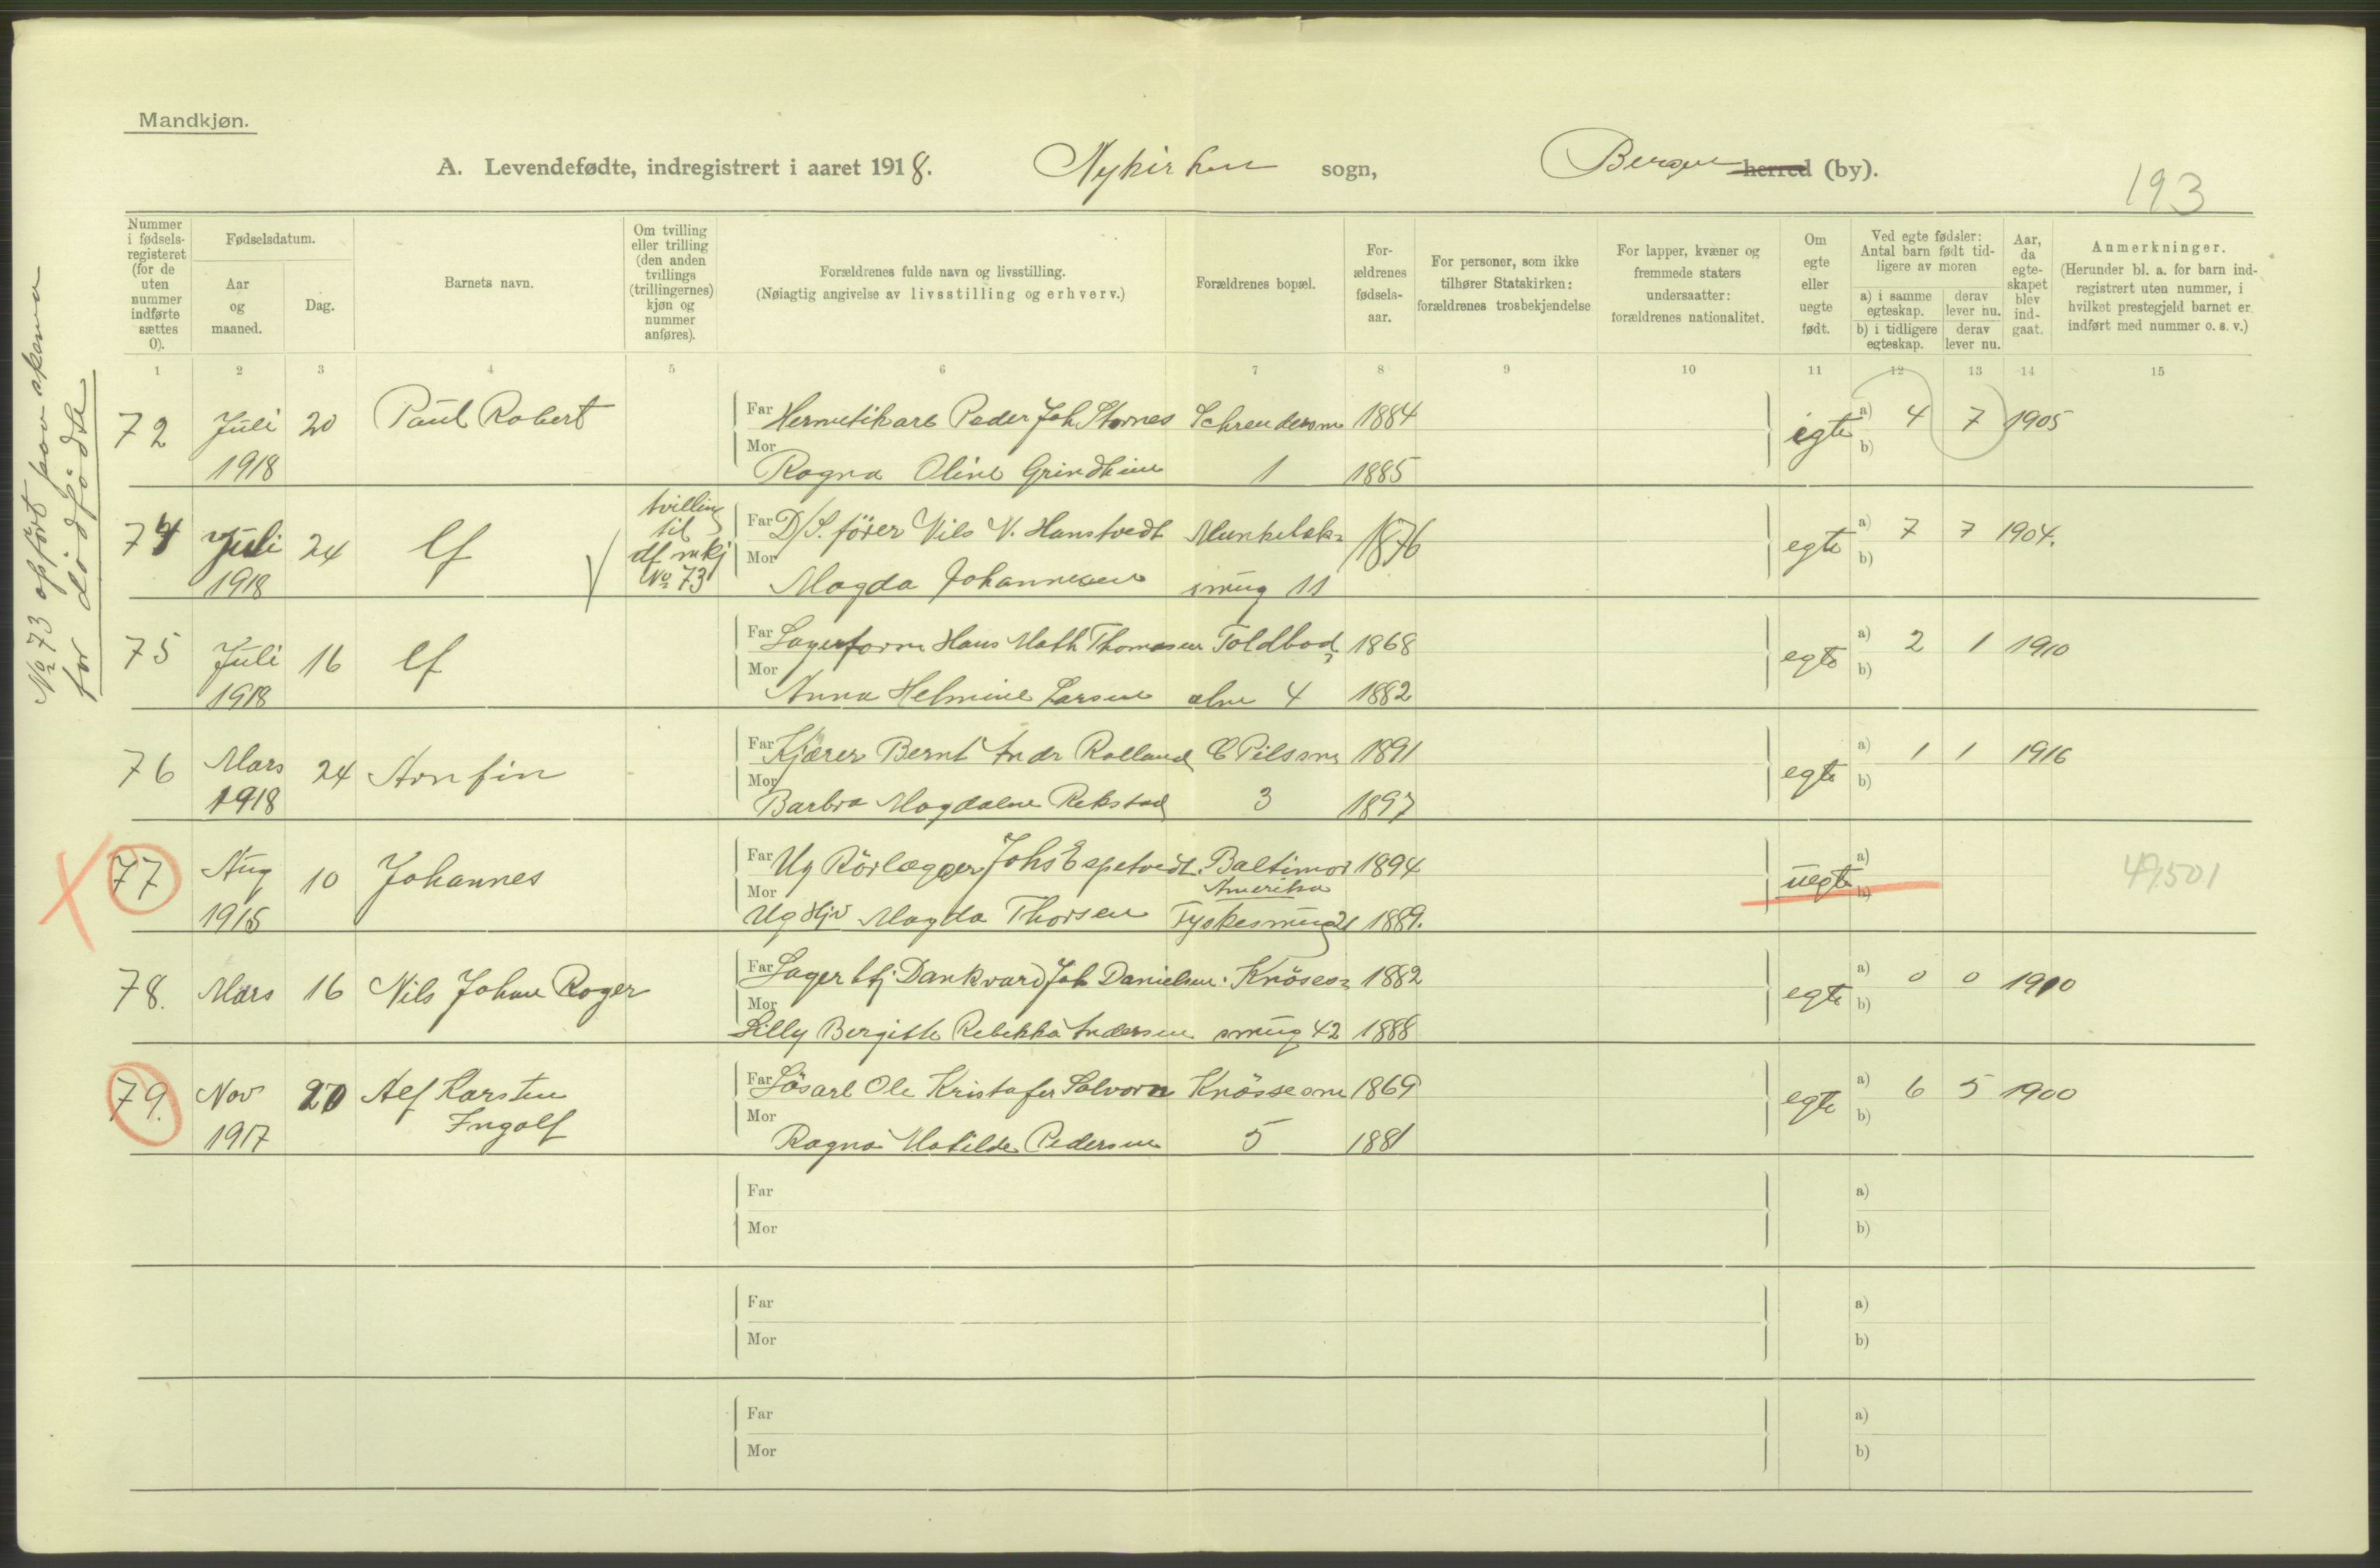 Mandkjøn.
A. Levendefødte, indregistrert i aaret 1918. Nykirken sogn, Bergen herred (by).
193
Nummer i fødsels-registeret (for de uten nummer indførte sættes 0).
Fødselsdatum.
Aar og maaned.
Dag.
Barnets navn.
Om tvilling eller trilling (den anden tvillings (trillingernes) kjøn og nummer anføres).
Forældrenes fulde navn og livsstilling.
(Nøiagtig angivelse av livsstilling og erhverv.)
Forældrenes bopæl.
For-ældrenes fødsels-aar.
For personer, som ikke tilhører Statskirken: forældrenes trosbekjendelse
For lapper, kvæner og fremmede staters undersaatter: forældrenes nationalitet.
Om egte eller uegte født.
Ved egte fødsler: Antal barn født tid-ligere av moren
a) i samme egteskap.
derav lever nu.
b) i tidligere egteskap.
derav lever nu.
Aar, da egte-skapet blev ind-gaat.
Anmerkninger.
(Herunder bl. a. for barn ind-registrert uten nummer, i hvilket prestegjeld barnet er indført med nummer o. s. v.)
1 2 3 4 5 6 7 8 9 10 11 12 13 14 15
No 73 opført paa skema
for dødfødte
72 Juli 20 Paul Robert Far Hermetikarb Peder Joh Stornes 1884 egte a) 4 7 1905
1918 Mor Ragna Oline Grindheim 1 1885 b)
74 Juli 24 lf tvilling til df mkj No 73 Far D/S. fører Nils N. Hanstvedt Munkebæk= 1876 egte a) 7 7 1904.
1918 Mor Magda Johannesen smug 11 b)
75 Juli 16 lf Far Lagerform Hans Math Thomasen Toldbod= 1868 egte a) 2 1 1910
1918 Mor Anna Helmine Larsen alm 4 1882 b)
76 Mars 24 Arnfin Far Kjører Bernt Andr Rolland 1891 egte a) 1 1 1916
1918 Mor Barbra Magdalene Rekstad 3 1897 b)
77 Aug 10 Johannes Far Ug Rörlægger Johs Espetvedt. Baltimor Amerika 1894 uegte a) 49501
1915 Mor Ug Hjv Magda Thorsen Tyskesmug 21 1889. b)
78. Mars 16 Nils Johan Roger Far Lager bfj Dankvard Joh Danielsen. Knöses= 1882 egte a) 0 0 1910
Mor Lilly Bergitte Rebekka Andersen smug 42 1888 b)
79. Nov 20 Alf Karsten Far Lösarb Ole Kristofer Solvorn Knössesm 1869 egte a) 6 5 1900
1917 Ingolf Mor Ragna Matilde Pedersen 5 1881 b)
Far a)
Mor b)
Far a)
Mor b)
Far a)
Mor b)